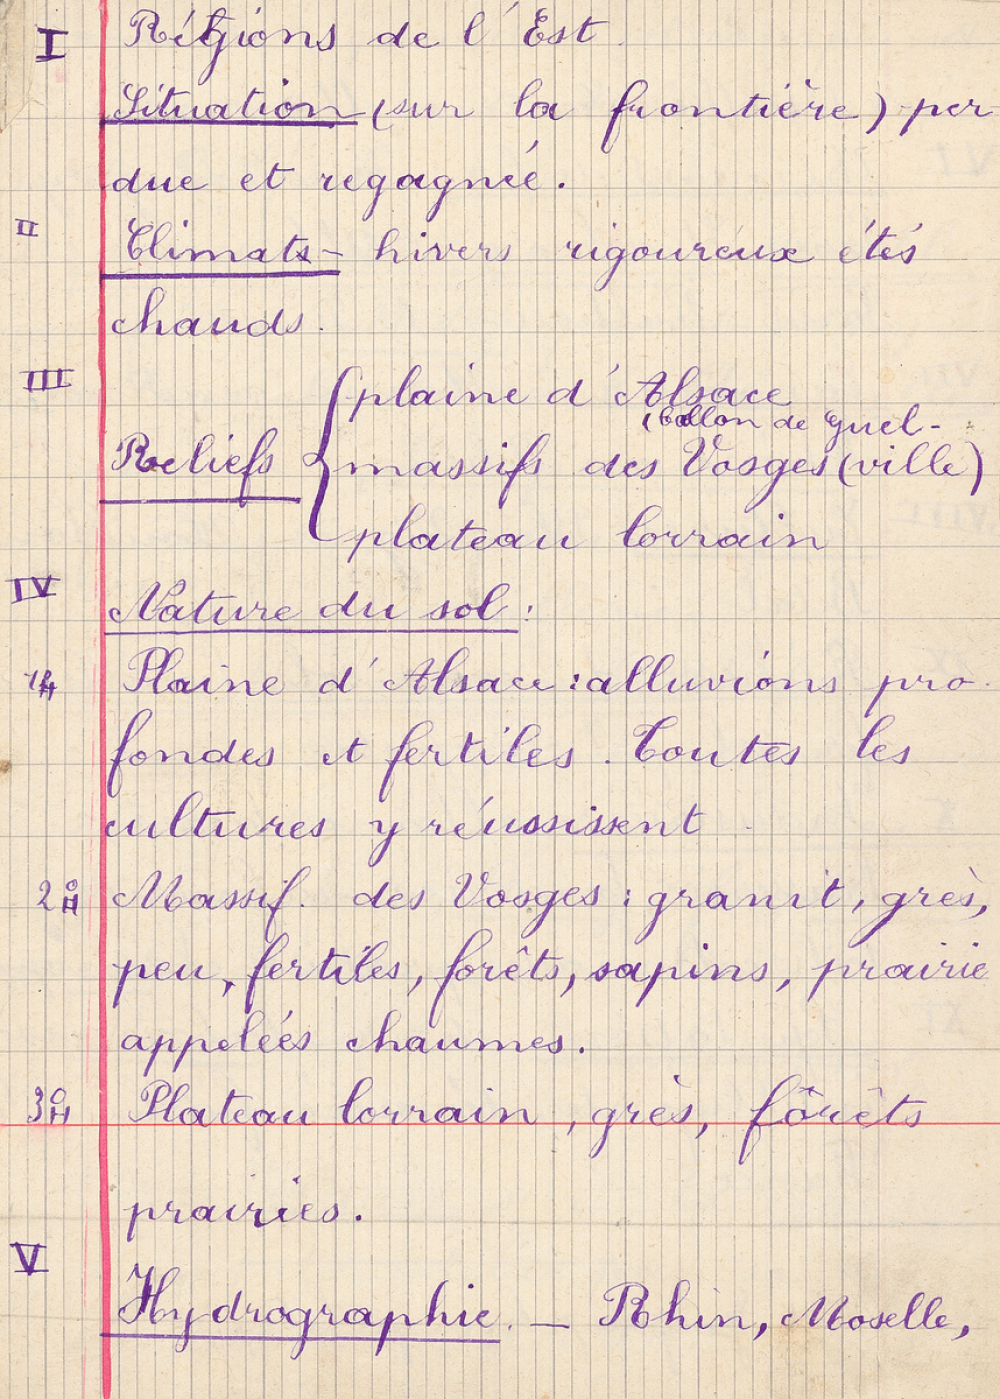 I Régions de l'Est.
Situation (sur la frontière) per
due et regagnée.
II Climats - hivers rigoureux étés
chauds.
III plaine d'Alsace
(ballon de Guel-
Reliefs { massifs des Vosges (ville)
plateau lorrain
IV Nature du sol :
1º Plaine d'Alsace : alluvions pro-
fondes et fertiles. Toutes les
cultures y réussissent.
2º Massif. des Vosges : granit, grès,
peu, fertiles, forêts, sapins, prairie
appelées chaumes.
3º Plateau lorrain, grès, fôrêts
prairies.
V Hydrographie. — Rhin, Moselle,